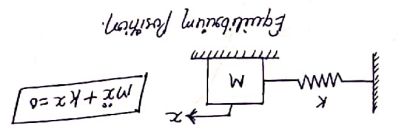 x
mẍ + Kx = 0
K
M
Equilibrium Position.